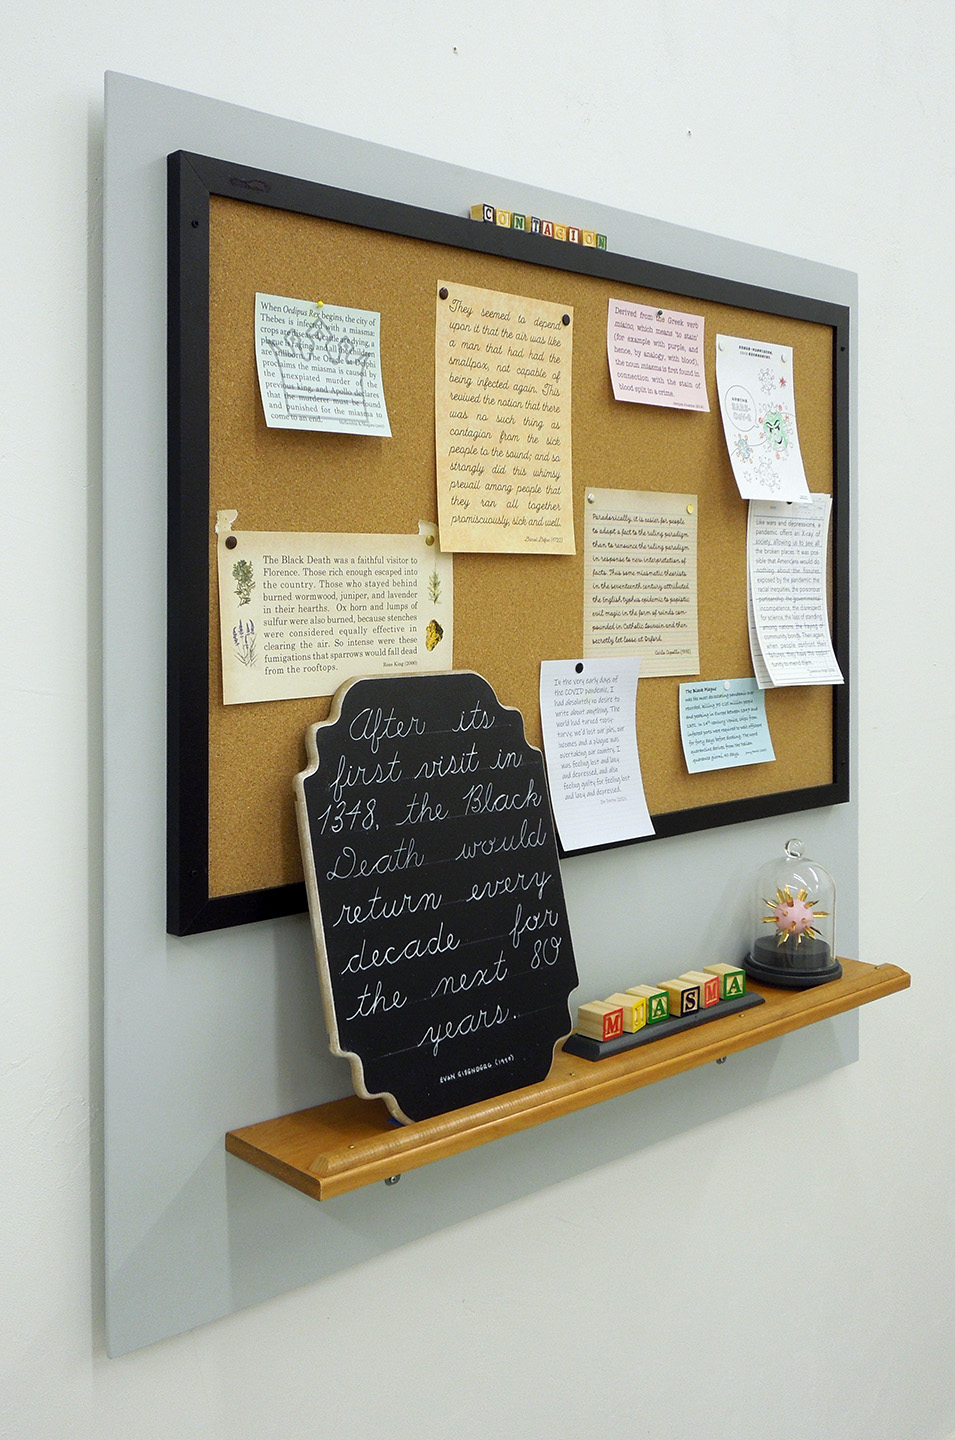 CONTAGION
When Oedipus Rex begins, the city of
Thebes is infected with a miasma:
crops are diseased, cattle are dying, a
plague is raging and all the children
are stillborn. The Oracle at Delphi
proclaims the miasma is caused by
the unexpiated murder of the
previous king, and Apollo declares
that the murderer must be found
and punished for the miasma to
come to an end.
They seemed to depend
upon it that the air was like
a man that had had the
smallpox, not capable of
being infected again. This
revived the notion that there
was no such thing as
contagion from the sick
people to the sound; and so
strongly did this whimsy
prevail among people that
they ran all together
promiscuously, sick and well.
Daniel Defoe (1722)
Derived from the Greek verb
miaino, which means 'to stain'
(for example with purple, and
hence, by analogy, with blood),
the noun miasma is first found in
connection with the stain of
blood spilt in a crime.
The Black Death was a faithful visitor to
Florence. Those rich enough escaped into
the country. Those who stayed behind
burned wormwood, juniper, and lavender
in their hearths. Ox horn and lumps of
sulfur were also burned, because stenches
were considered equally effective in
clearing the air. So intense were these
fumigations that sparrows would fall dead
from the rooftops.
Ross King (2000)
Paradoxically, it is easier for people
to adapt a fact to the ruling paradigm
than to renounce the ruling paradigm
in response to new interpretation of
facts. Thus some miasmatic theorists
in the seventeenth century attributed
the English typhus epidemic to papistic
evil magic in the form of winds com-
pounded in Catholic Louvain and then
secretly let loose at Oxford.
Carlo Cipolla (1992)
Like wars and depressions, a
pandemic offers an X-ray of
society, allowing us to see all
the broken places. It was pos-
sible that Americans would do
nothing about the fissures
exposed by the pandemic: the
racial inequities, the poisonous
partisanship, the governmental
incompetence, the disrespect
for science, the loss of standing
among nations, the fraying of
community bonds. Then again,
when people confront their
failures, they have the oppor-
tunity to mend them.
In the very early days of
the COVID pandemic, I
had absolutely no desire to
write about anything. The
world had turned topsy-
turvy, we'd lost our jobs, our
incomes and a plague was
overtaking our country. I
was feeling lost and lazy
and depressed, and also
feeling guilty for feeling lost
and lazy and depressed.
The Black Plague
was the most devastating pandemic ever
recorded, killing
and peaking in Europe between 1347 and
1351. In 14th century Venice, ships from
infected ports were required to wait offshore
for forty days before docking. The word
quarantine derives from the Italian
quaranta giorni, 40 days.
After its
first visit in
1348, the Black
Death would
return every
decade for
the next 80
years.
EVAN EISENBERG (1998)
MIASMA